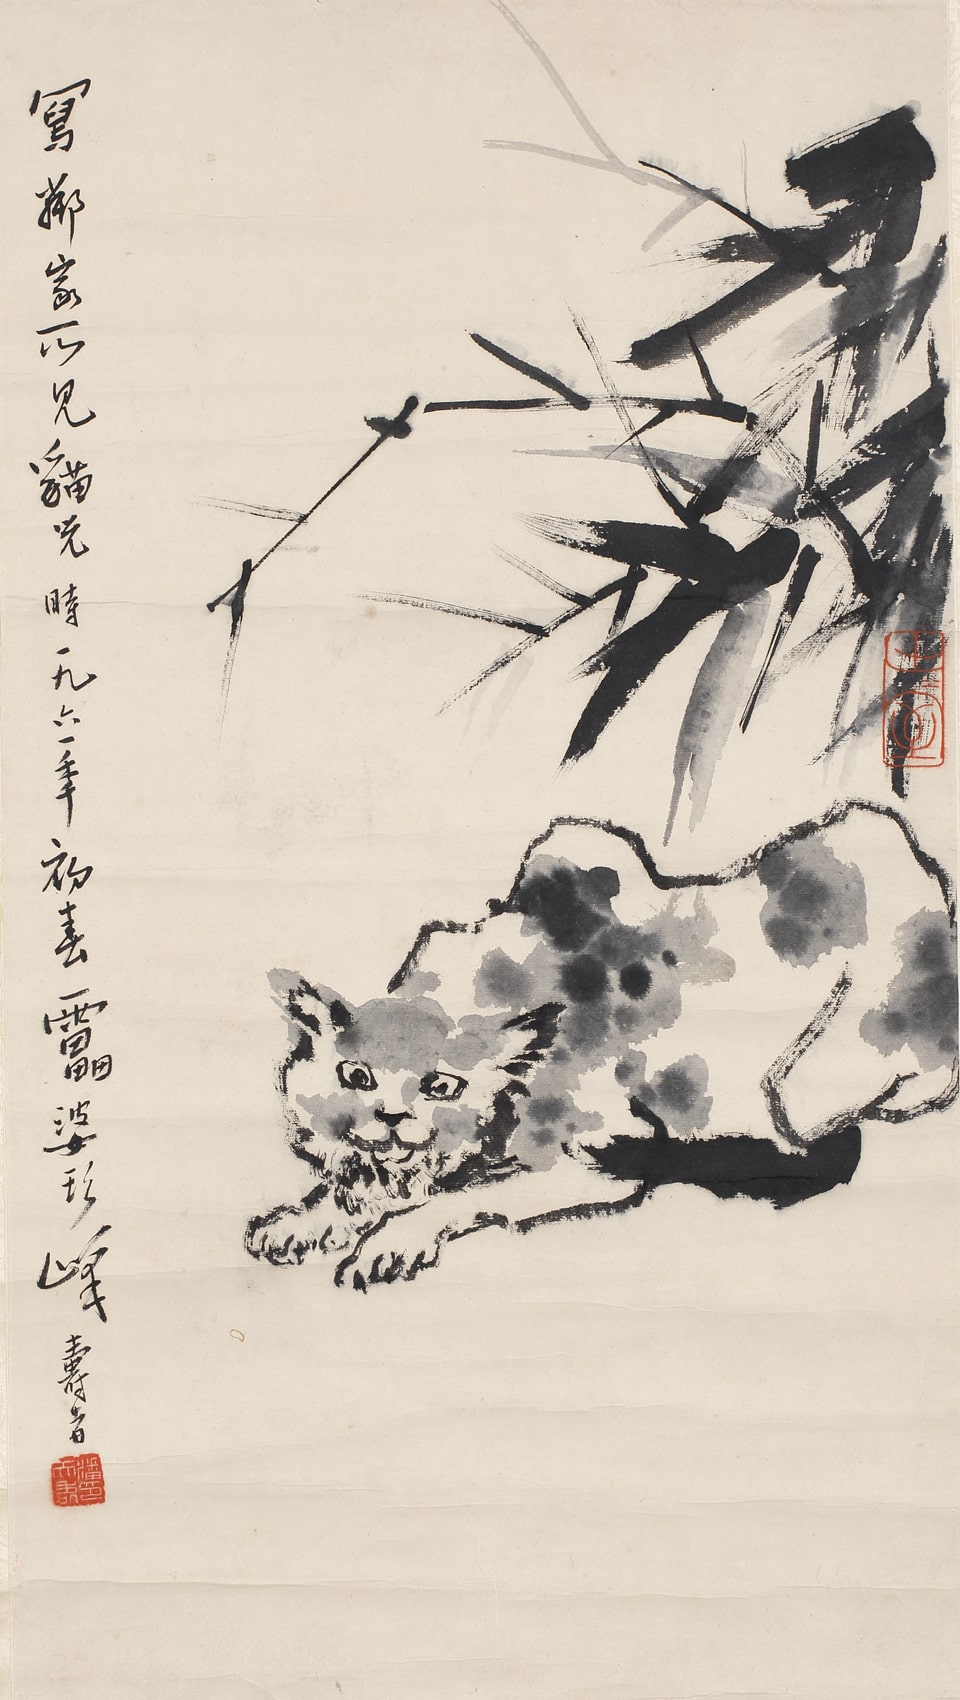 寫鄰家所見貓兒時一九六一年初春雷婆頭峰壽者